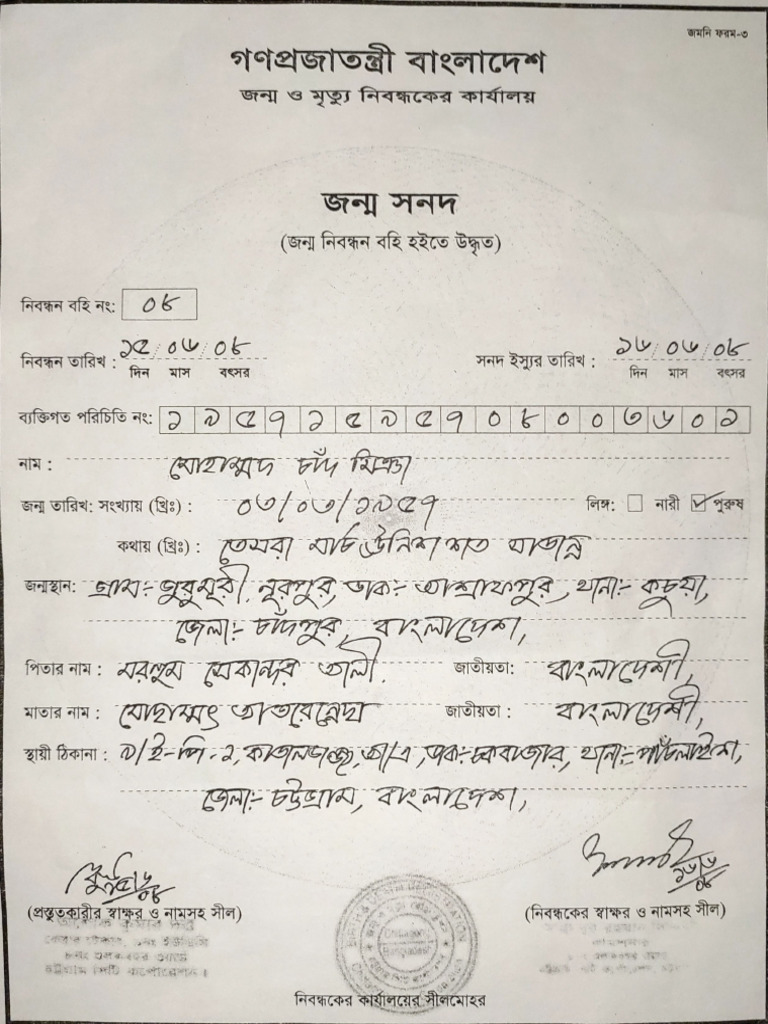 জমনি ফরম-৩
গণপ্রজাতন্ত্রী বাংলাদেশ
জন্ম ও মৃত্যু নিবন্ধকের কার্যালয়
জন্ম সনদ
(জন্ম নিবন্ধন বহি হইতে উদ্ধৃত)
নিবন্ধন বহি নং: ০৮
নিবন্ধন তারিখ : ১৫/০৬/০৮ সনদ ইস্যুর তারিখ : ১৬/০৬/০৮
দিন মাস বৎসর দিন মাস বৎসর
ব্যক্তিগত পরিচিতি নং: ১৯৫৭১৫৯৫৭০৮০০৩৬০১
নাম : মোহাম্মদ চাঁদ মিঞা
জন্ম তারিখ: সংখ্যায় (খ্রিঃ) : ০৩/০৩/১৯৫৭ লিঙ্গ: নারী পুরুষ
কথায় (খ্রিঃ) : তেসরা মার্চ ঊনিশ শত সাতান্ন
জন্মস্থান: গ্রাম:- নূরপুর, ডাক:- আশ্রাফপুর, থানা:- কচুয়া,
জেলা:- চাঁদপুর, বাংলাদেশ,
পিতার নাম : মরহুম সেকান্দর আলী. জাতীয়তা: বাংলাদেশী,
মাতার নাম : মোছাম্মৎ আতরেন্নেছা জাতীয়তা : বাংলাদেশী,
স্থায়ী ঠিকানা : ৯/ই-পি-২, কাতালগঞ্জ, আ/এ, ডাক:- চকবাজার, থানা:- পাঁচলাইশ,
জেলা:- চট্টগ্রাম, বাংলাদেশ,
১৫/৬/০৮ ১৬/৬/০৮
(প্রস্তুতকারীর স্বাক্ষর ও নামসহ সীল) (নিবন্ধকের স্বাক্ষর ও নামসহ সীল)
চট্টগ্রাম সিটি কর্পোরেশন।
Chittagong
Bangladesh
নিবন্ধকের কার্যালয়ের সীলমোহর